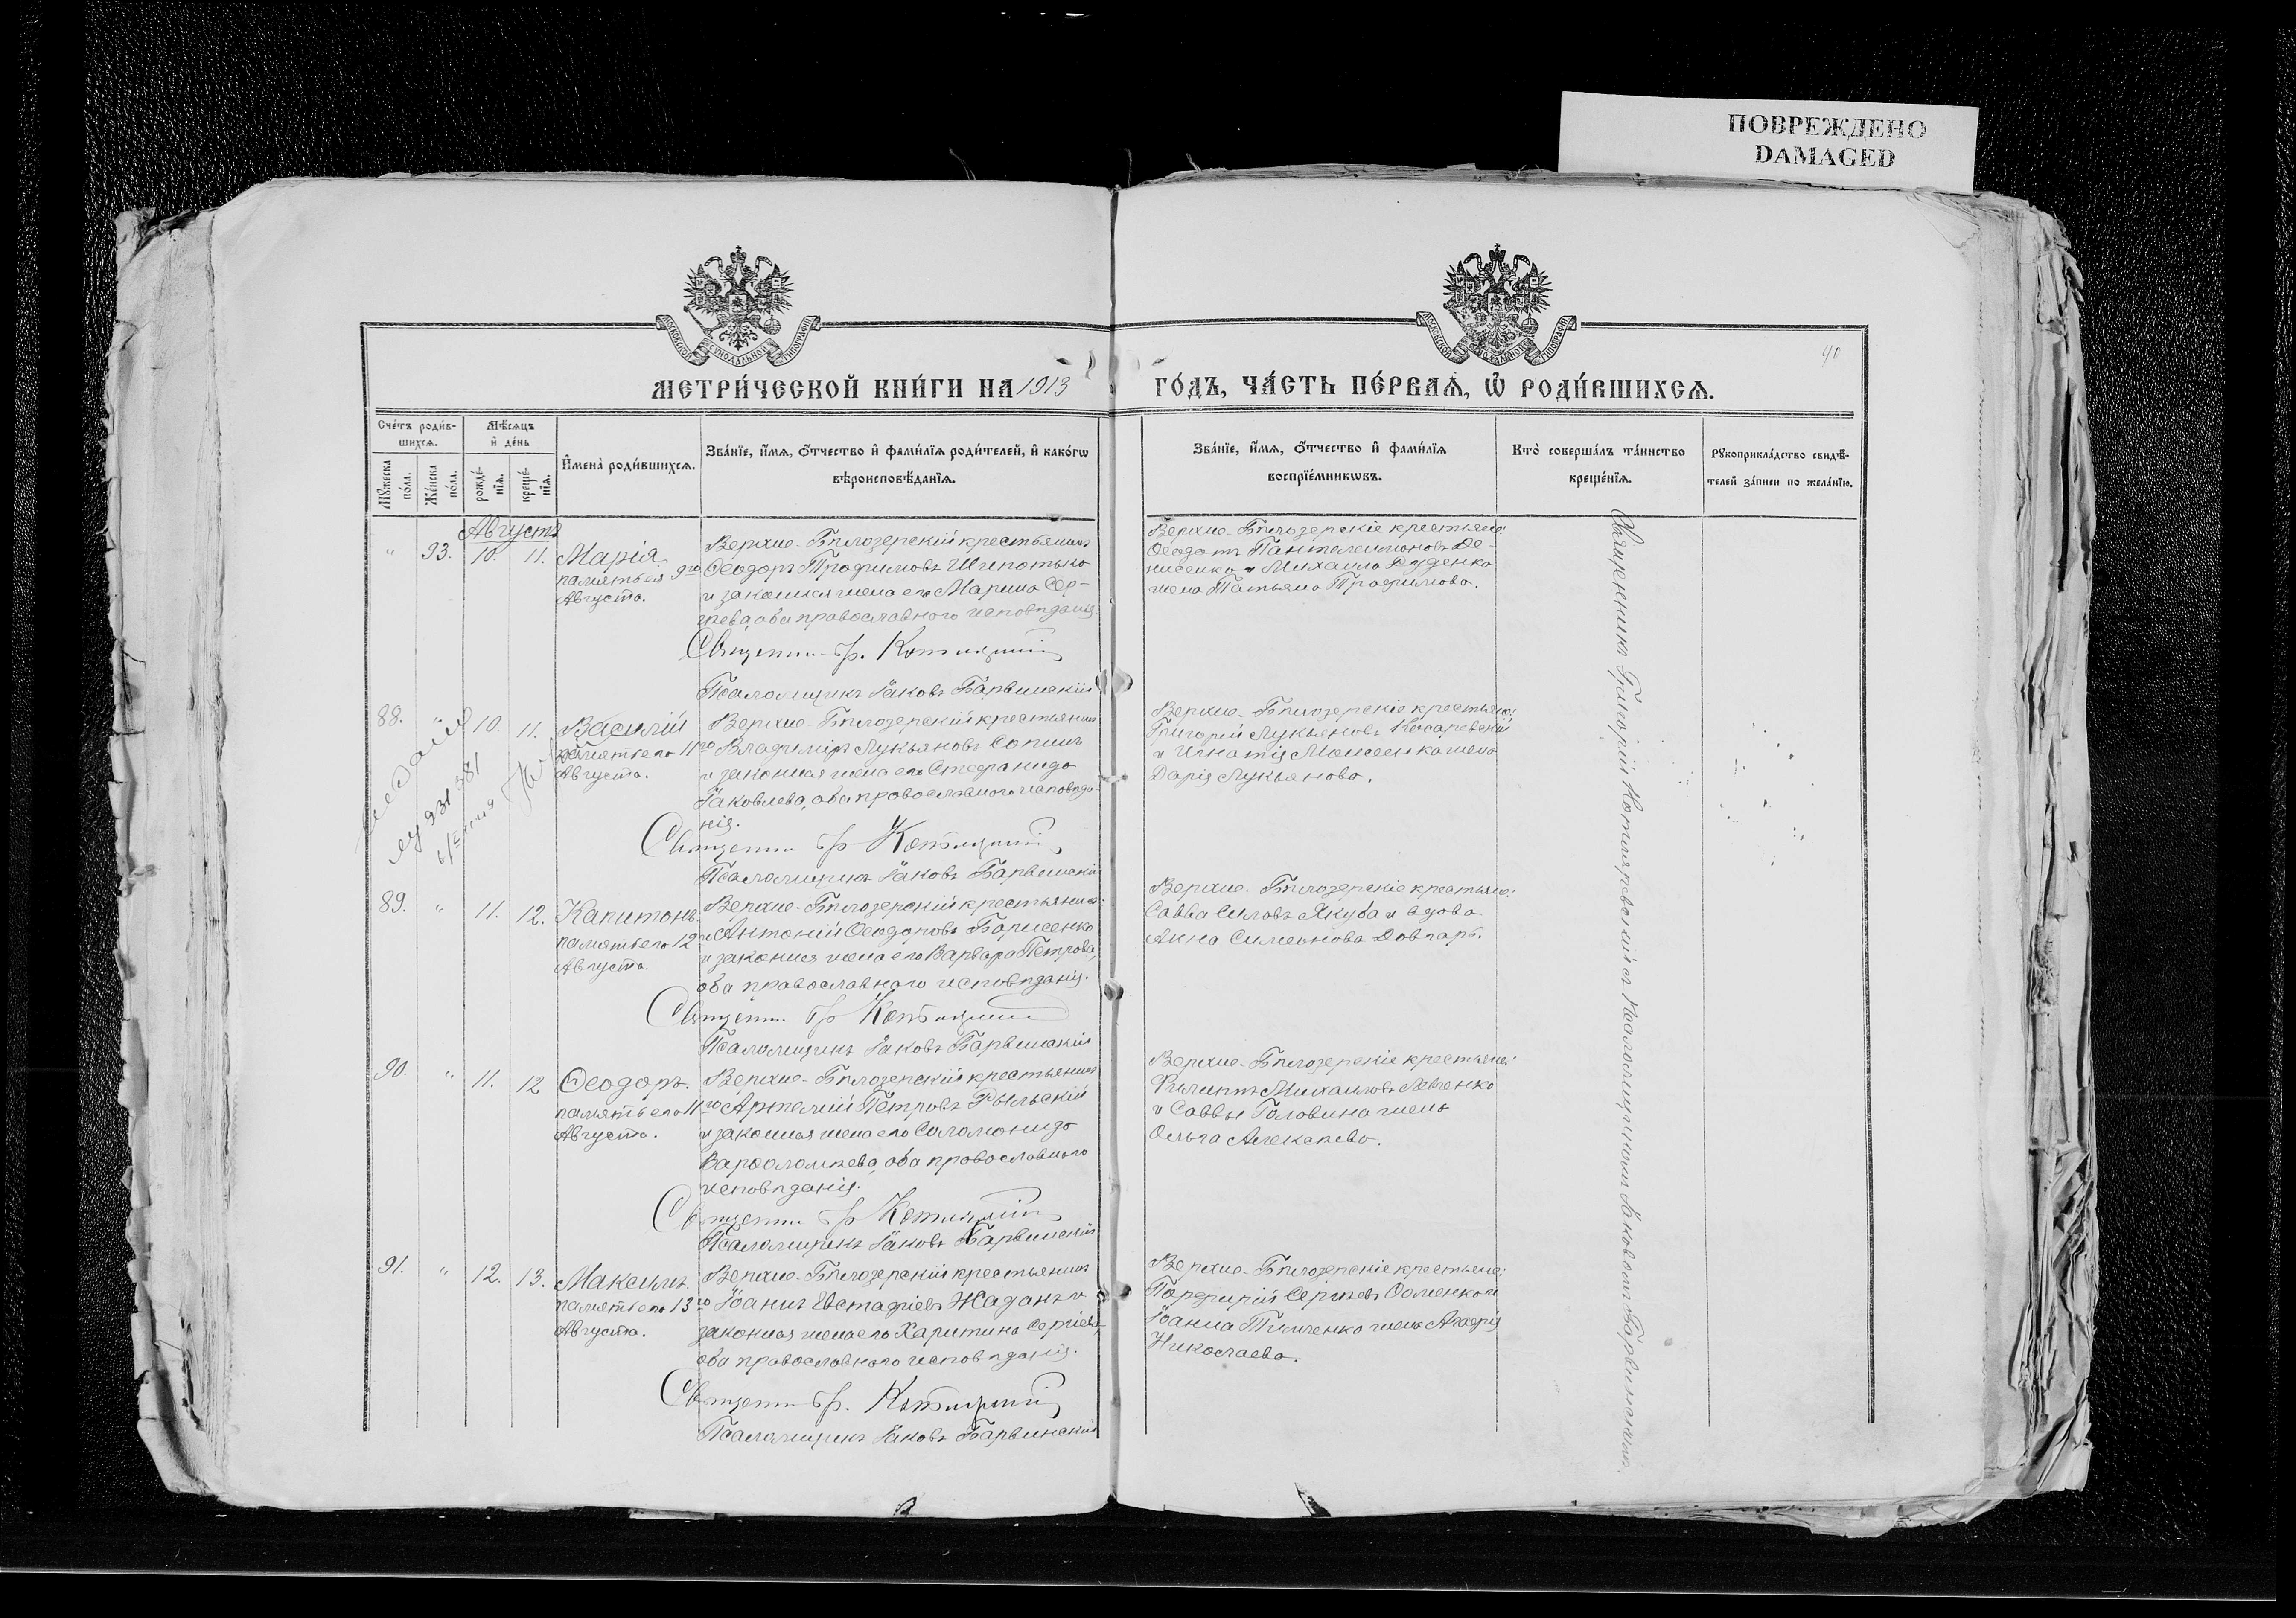 ПОВРЕЖДЕНО
DAMAGED
МЕТРИ́ЧЕСКОЙ КНИ́ГИ НА 1913
ГО́ДЪ, ЧА́СТЬ ПЕ́РВАѦ, Ѡ РОДИ́ВШИХСѦ.
40
Сче́тъ роди́в-
шихсѧ.
Мѣ́сѧцъ
и де́нь
Мꙋжеска
по́ла.
Же́нска
по́ла.
рожде́-
нїѧ.
креще́-
нїѧ.
Имена̀ роди́вшихсѧ.
Зва́нїе, и́мѧ, о́тчество и фами́лїѧ роди́телей, и како́гѡ
вѣроисповѣ́данїѧ.
Зва́нїе, и́мѧ, о́тчество и фами́лїѧ
воспрїе́мникѡвъ.
Кто̀ соверша́лъ та́инство
креще́нїѧ.
Рꙋкоприкла́дство свидѣ́-
телей за́писи по жела́нїю.
Августъ
" 93. 10. 11. Марія
память ея 9го
Августа.
Верхне-Бѣлозерскій крестьянинъ
Ѳеодоръ Трофимовъ Шепотько
и законная жена его Марина Сер-
гѣева, оба православнаго исповѣданія.
Священн. Гр.
Псаломщикъ Іаковъ Барвинскій
Верхне-Бѣлозерскіе крестьяне:
Ѳеодотъ Пантелеимоновъ Де-
нисенко и Михаила Руденко
жена Татьяна Трофимова.
88. " 10. 11. Василій
память его 11го
Августа.
Верхне-Бѣлозерскій крестьянинъ
Владиміръ Лукьяновъ Сопинъ
и законная жена его Стефанида
Іаковлева, оба православнаго исповѣда-
нія.
Священн. Гр
Псаломщикъ Іаковъ Барвинскій
Верхне-Бѣлозерскіе крестьяне:
Григорій Лукьяновъ Косаревскій
и Игнатія Моисеенка жена
Дарія Лукьянова.
89. " 11. 12. Капитонъ
память его 12го
Августа.
Верхне-Бѣлозерскій крестьянинъ
Антоній Ѳеодоровъ Борисенко
и законная жена его Варвара Петрова,
оба православнаго исповѣданія.
Священн. Гр
Псаломщикъ Іаковъ Барвинскій
Верхне-Бѣлозерскіе крестьяне:
Савва Силовъ Якуба и вдова
Анна Симеонова Довгаръ.
90. " 11. 12 Ѳеодоръ.
память его 11го
Августа.
Верхне-Бѣлозерскій крестьянинъ
Артемій Петровъ Рыльскій
и законная жена его Соломонида
Варѳоломѣева, оба православнаго
исповѣданія.
Священн. Гр
Псаломщикъ Іаковъ Барвинскій
Верхне-Бѣлозерскіе крестьяне:
Филиппъ Михаиловъ Левченко
и Саввы Головина жена
Ольга Алексѣева.
91. " 12. 13. Максимъ
память его 13го
Августа.
Верхне-Бѣлозерскій крестьянинъ
Іоаннъ Евстафіевъ Жаданъ и
законная жена его Харитина Сергіева,
оба православнаго исповѣданія.
Священн. Гр.
Псаломщикъ Іаковъ Барвинскій
Верхне-Бѣлозерскіе крестьяне:
Порфирій Сергѣевъ и
Іоанна Тимченко жена Агафія
Николаева.
Священникъ Григорій съ Псаломщикомъ Іаковомъ Барвинскимъ.